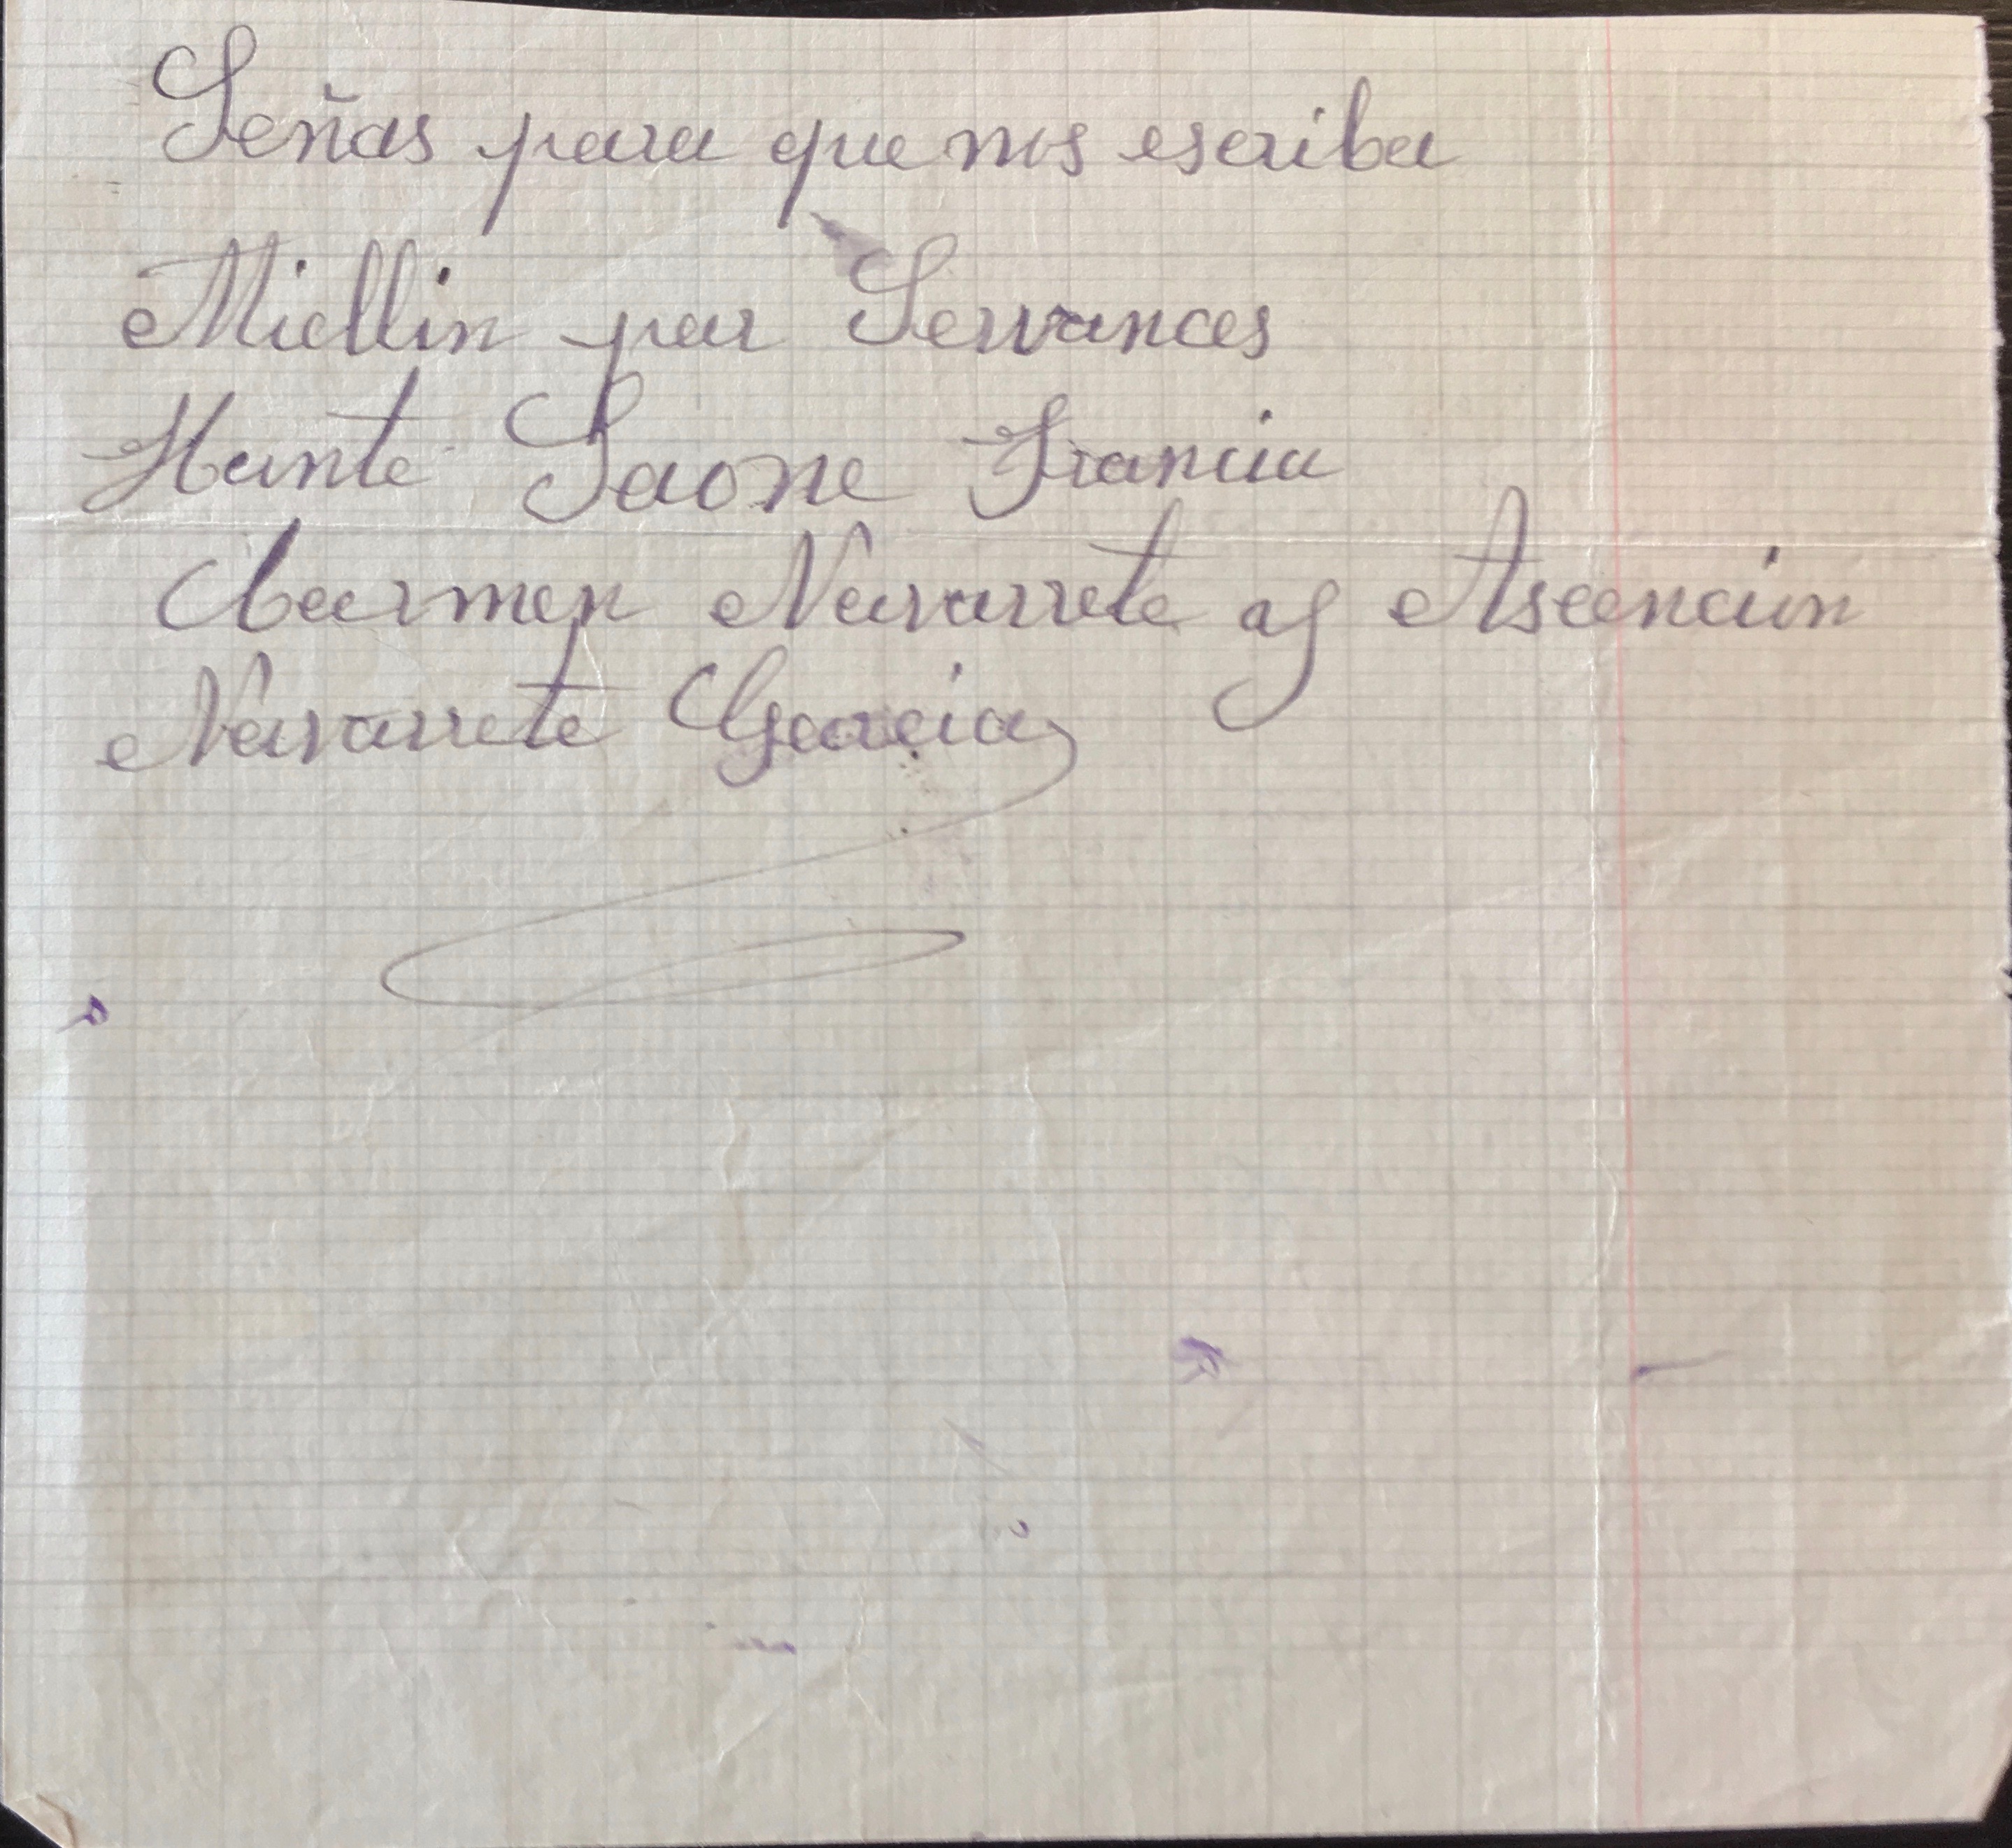 Señas para que nos escriba
Miellin par Servances
Hante Saone Francia
Carmen Navarrete y Ascencion
Navarrete Garcia